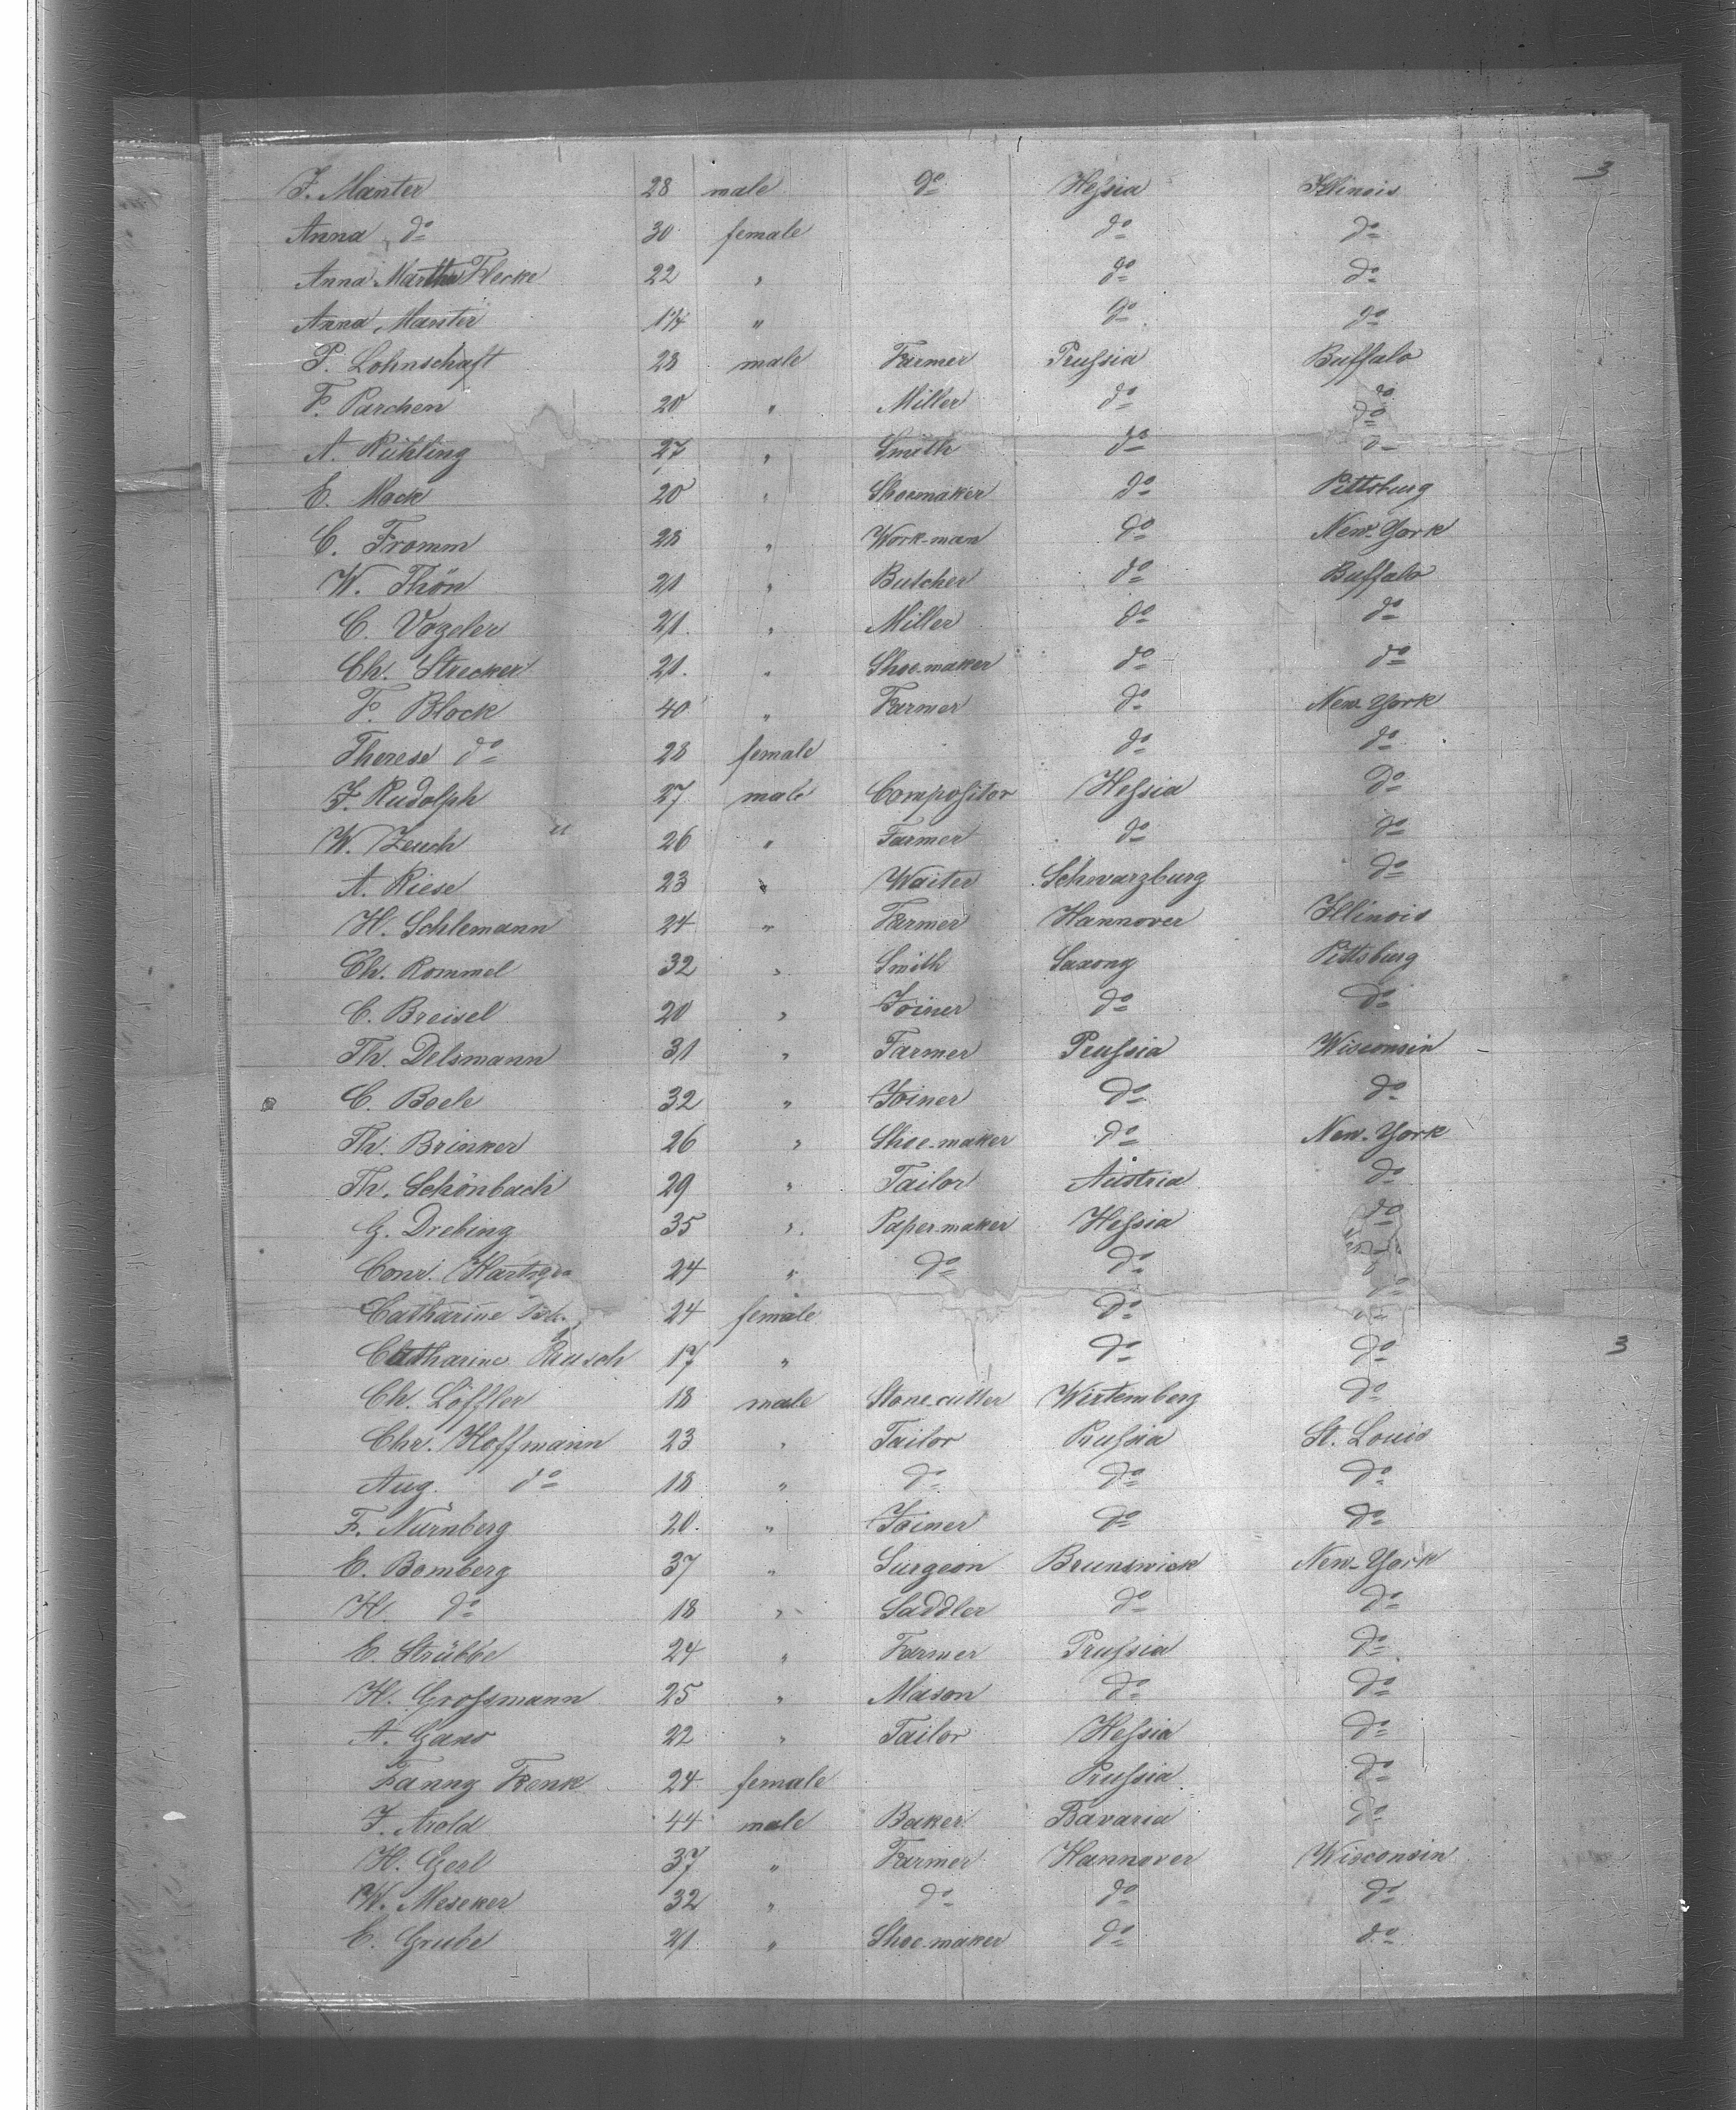 3
J. Manter 28 male do Hessia Illinois
Anna do 30 female do do
Anna Martha Flecke 22 " do do
Anna Manter 1¼ " do do
P. Lohnschaft 28 male Farmer Prussia Buffalo
F. Parchen 20 " Miller do do
A. Rühling 27 " Smith do do
E. Mack 20 " Shoemaker do Pittsburg
C. Fromm 28 " Work-man do New-York
W. Thön 21 " Butcher do Buffalo
C. Vogeler 21. " Miller do do
Ch. Strecker 21. " Shoe-maker do do
F. Block 40 " Farmer do New-York
Therese do 28 female do do
J. Rudolph 27 male Compositor Hessia do
W. Zeuch 26 " Farmer do do
A. Riese 23 " Waiter Schwarzburg do
H. Schlemann 24 " Farmer Hannover Illinois
Ch. Rommel 32 " Smith Saxony Pittsburg
C. Breisel 20 " Joiner do do
Th. Delsmann 31 " Farmer Prussia Wisconsin
C. Boele 32 " Joiner do do
Th. Brinker 26 " Shoe-maker do New-York
Th. Schönbach 29 " Tailor Austria do
G. Drebing 35 " Paper-maker Hessia do
Conr. 24 " do do
Catharine 24 female do
Catharine Rusch 17 " do do
3
Ch. Löffler 18 male Stone-cutter Wirtemberg do
Chr. Hoffmann 23 " Tailor Prussia St. Louis
Aug. do 18 " do do do
F. Nürnberg 20. " Joiner do do
E. Bomberg 37 " Surgeon Brunswick New-York
H. do 18 " Saddler do do
E. Strübbe 24 " Farmer Prussia do
H. Grossmann 25 " Mason do do
A. Gans 22 " Tailor Hessia do
Fanny Frenk 24 female Prussia do
J. Arold 44 male Baker Bavaria do
H. Gerl 37 " Farmer Hannover Wisconsin
W. Meseker 32 " do do do
E. Grube 21 " Shoe-maker do do